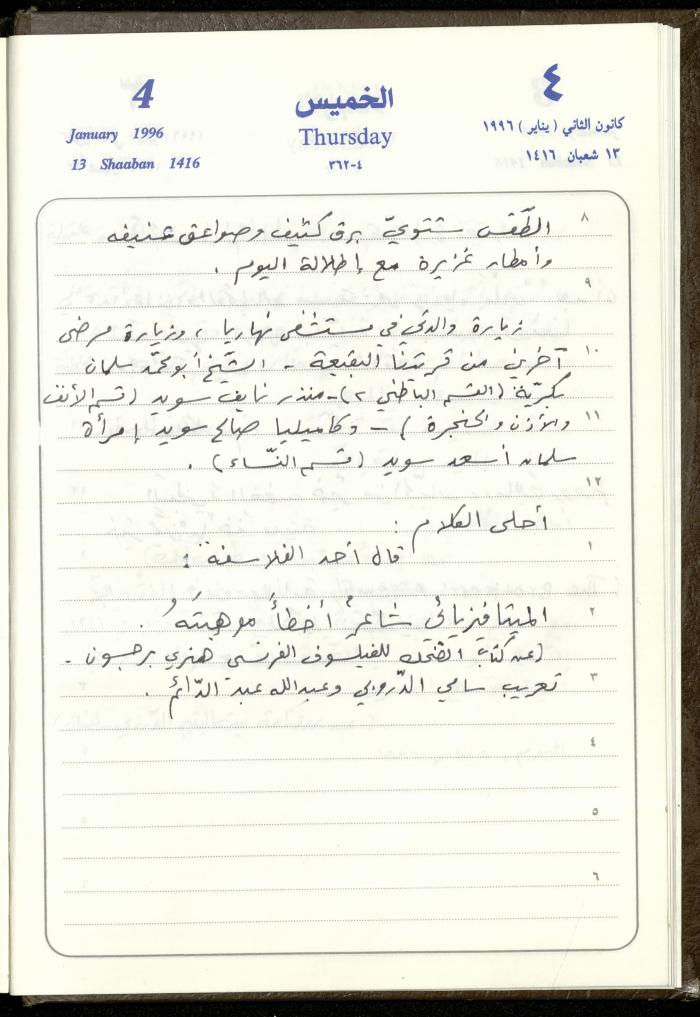 4
January 1996
13 Shaaban 1416
الخميس
Thursday
٣٦٢-٤
٤
كانون الثاني ( يناير ) ١٩٩٦
١٣ شعبان ١٤١٦
٨
الطّقس شتويّ برق كثيف وصواعق عنيفه
وأمطار غزيرة مع إطلالة اليوم .
٩
زيارة والدتي في مستشفى نهاريا ، وزيارة مرضى
١٠
آخرين من قريتنا البقيعة - الشّيخ أبو محمّد سلمان
بكريّة (القسم الباطني ٢) - منذر نايف سويد (قسم الأنف
١١
والأذن والحنجرة ) - وكاميليا صالح سويد إمرأة
سلمان أسعد سويد (قسم النّساء) .
١٢
أحلى الكلام :
١
قال أحد الفلاسفة :
٢
الميتافيزيائيُّ شاعرٌ أخطأَ موهبتَهُ .
(عن كتاب الضّحك للفيلسوف الفرنسي هنري برجسون -
٣
تعريب سامي الدّروبي وعبدالله عبد الدّائم .
٤
٥
٦